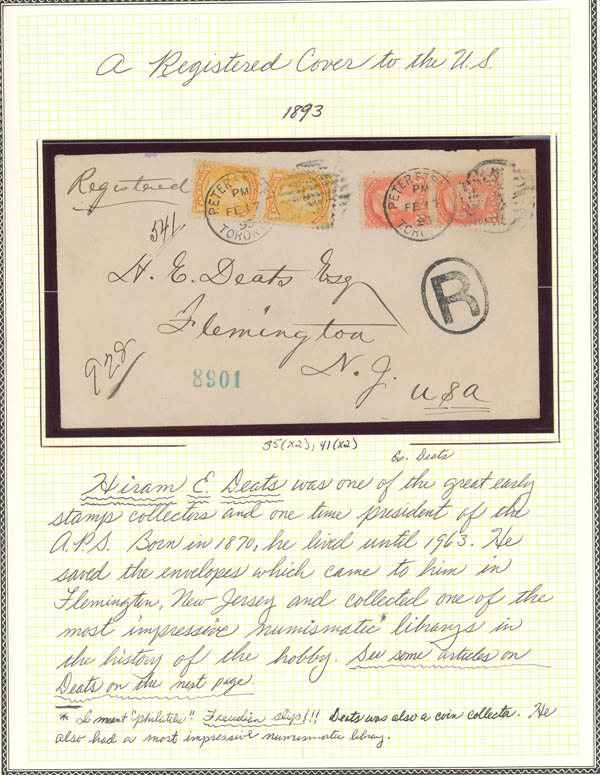 A Registered Cover to the U.S.
1893
Registered
541
PETER ST.
PM
FE 17
93
TORONTO
PETER ST.
PM
FE 17
93
TORONTO
H. E. Deats Esq
Flemington
N. J.
USA
R
928
8901
35(X2), 41(X2)
Ex. Deats
Hiram E. Deats was one of the great early
stamp collectors and one time president of the
A.P.S. Born in 1870, he lived until 1963. He
saved the envelopes which came to him in
Flemington, New Jersey and collected one of the
most impressive numismatic* librarys in
the history of the hobby. See some articles on
Deats on the next page.
* I meant "philatelic" Freudian slip!!! Deats was also a coin collector. He
also had a most impressive numismatic library.